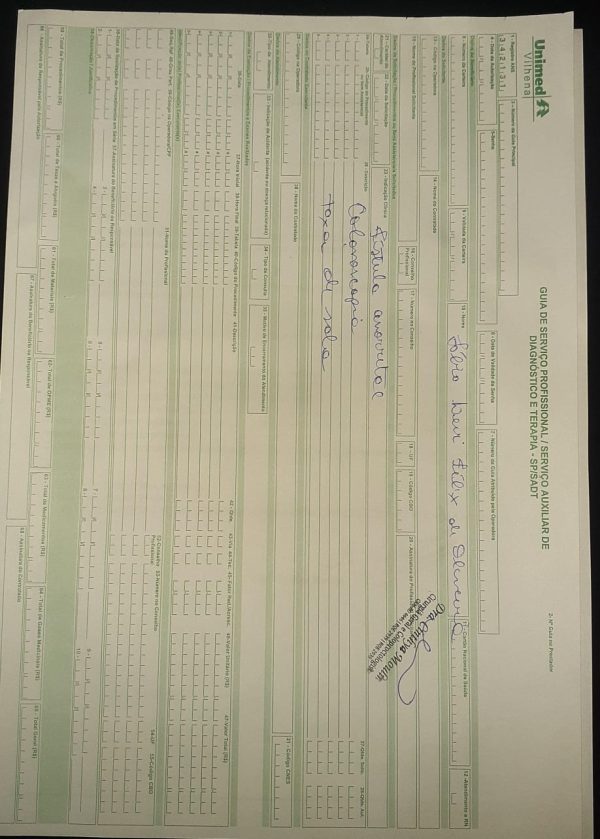 Unimed
Vilhena
GUIA DE SERVIÇO PROFISSIONAL / SERVIÇO AUXILIAR DE
DIAGNÓSTICO E TERAPIA - SP/SADT
2- Nº Guia no Prestador
1 - Registro ANS
342131
3 - Número da Guia Principal
4 - Data da Autorização
5-Senha
6 - Data de Validade da Senha
7 - Número da Guia Atribuído pela Operadora
Dados do Beneficiário
8 - Número da Carteira
9 - Validade da Carteira
10 - Nome
de
11 - Cartão Nacional de Saúde
12 -Atendimento a RN
Dados do Solicitante
13 - Código na Operadora
14 - Nome do Contratado
15 - Nome do Profissional Solicitante
16 - Conselho
Profissional
17 - Número no Conselho
18 - UF
19 - Código CBO
20 - Assinatura do Profissional
Cirurgia Geral e Coloproctologia
22 - Data da Solicitação
23 - Indicação Clínica
Fístula anorretal
24-Tabela
25- Código do Procedimento
26 - Descrição
27-Qtde. Solic.
28-Qtde. Aut.
Colonoscopia
taxa de sala
29 - Código na Operadora
30 - Nome do Contratado
31 - Código CNES
Dados do Atendimento
32-Tipo de Atendimento
33 - Indicação de Acidente (acidente ou doença relacionada)
34 - Tipo de Consulta
35 - Motivo de Encerramento do Atendimento
36-Data
37-Hora Inicial
38-Hora Final
39-Tabela
40-Código do Procedimento
41-Descrição
42- Qtde.
43-Via
44-Tec.
45- Fator Red./Acresc.
46-Valor Unitário (R$)
47-Valor Total (R$)
48-Seq.Ref
49-Grau Part.
50-Código na Operadora/CPF
51-Nome do Profissional
52-Conselho
Profissional
53-Número no Conselho
54-UF
55-Código CBO
56-Data de Realização de Procedimentos em Série
57-Assinatura do Beneficiário ou Responsável
58-Observação / Justificativa
59 - Total de Procedimentos (R$)
60 - Total de Taxas e Aluguéis (R$)
61 - Total de Materiais (R$)
62- Total de OPME (R$)
63 - Total de Medicamentos (R$)
64 - Total de Gases Medicinais (R$)
65 - Total Geral (R$)
66 - Assinatura do Responsável pela Autorização
67 - Assinatura do Beneficiário ou Responsável
68 - Assinatura do Contratado